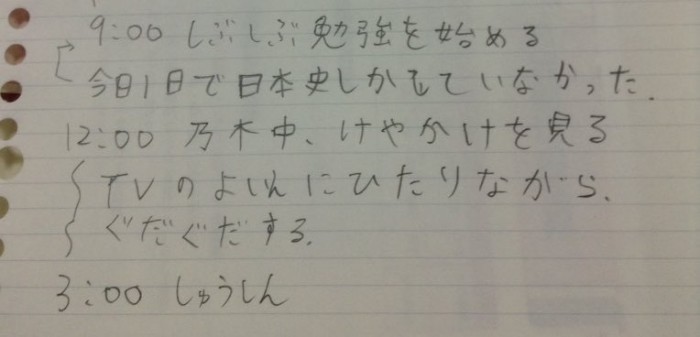 9:00 しぶしぶ勉強を始める
今日1日で日本史しかしていなかった.
12:00 乃木中、けやかけを見る
TVのよいんにひたりながら、
ぐだぐだする.
3:00 しゅうしん